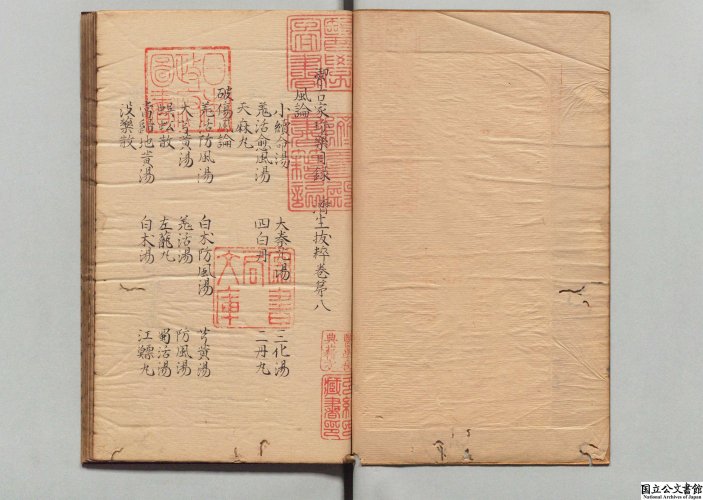 潔古家珍藥目録　濟生拔粹卷第八
風論
小續命湯　大秦艽湯　三化湯
羗活愈風湯　四白丹　二丹丸
天麻丸
破傷風論
羗活防風湯　白朮防風湯　芎黄湯
大芎黄湯　羗活湯　防風湯
蜈蚣散　左龍丸　羗活湯
當歸地黄湯　白朮湯　江鰾丸
没藥散
日本
政府
圖書
文庫
藏書
国立公文書館
National Archives of Japan